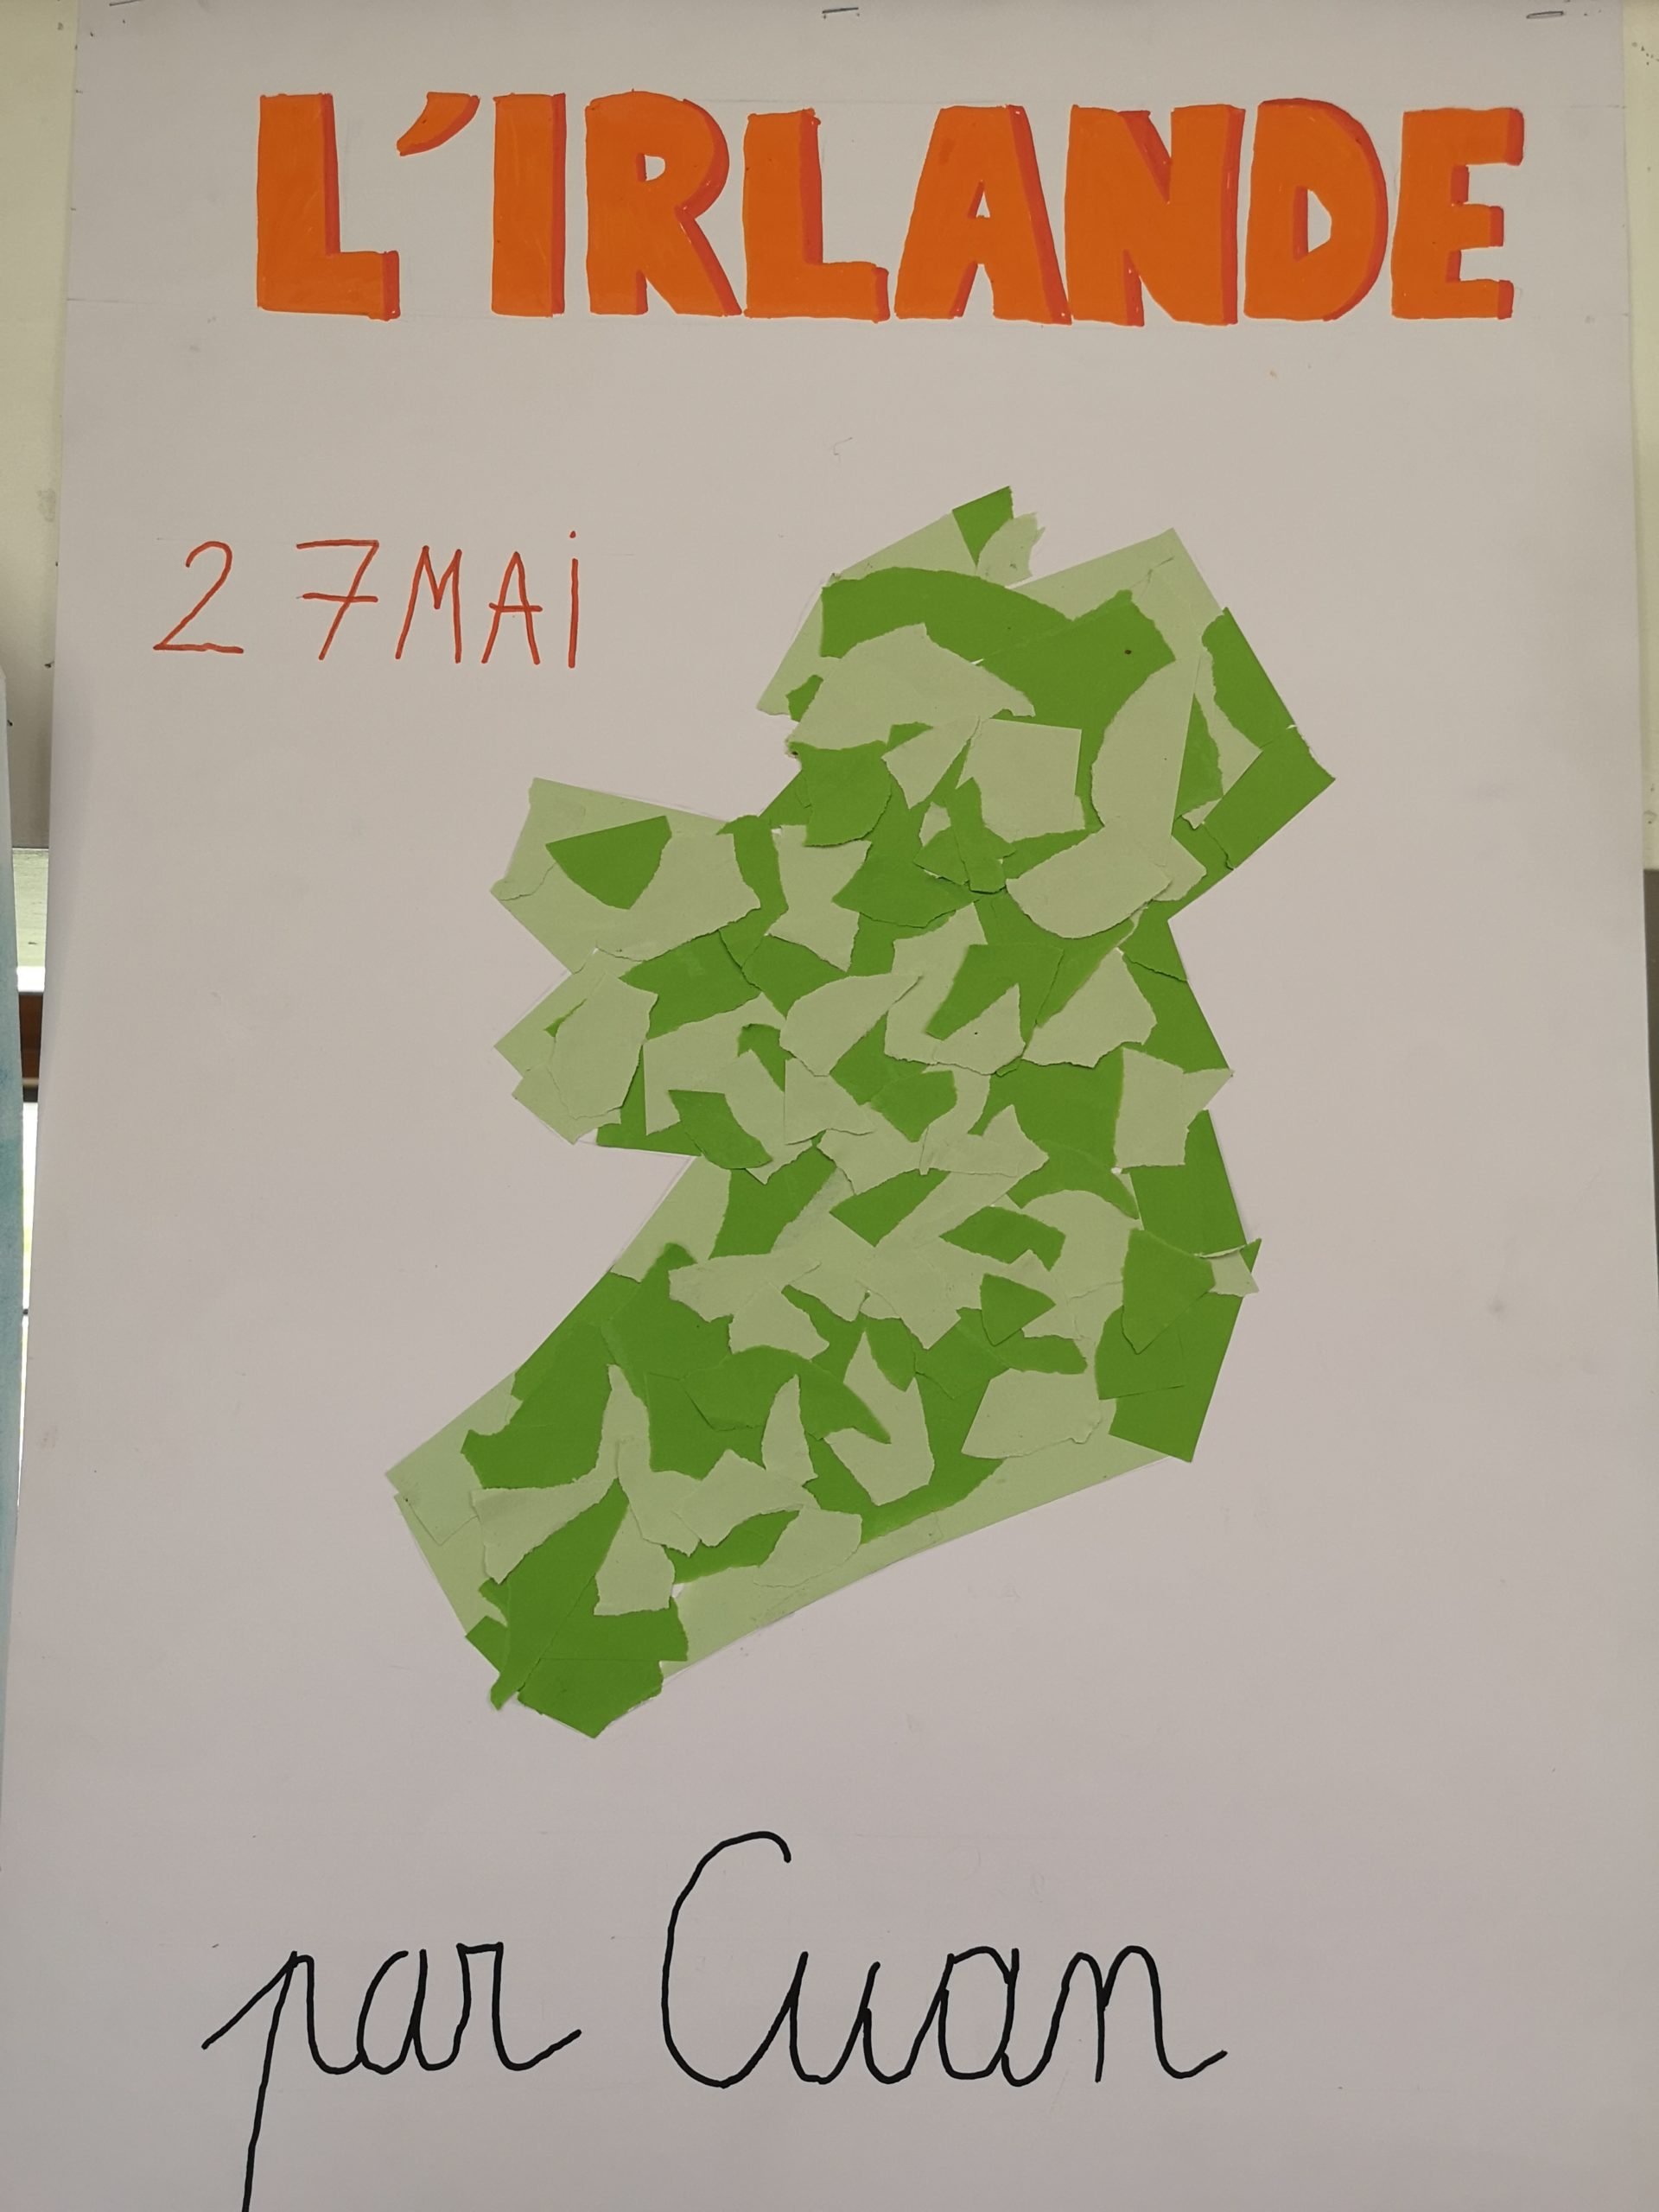 L'IRLANDE
27 MAi
par Cuan